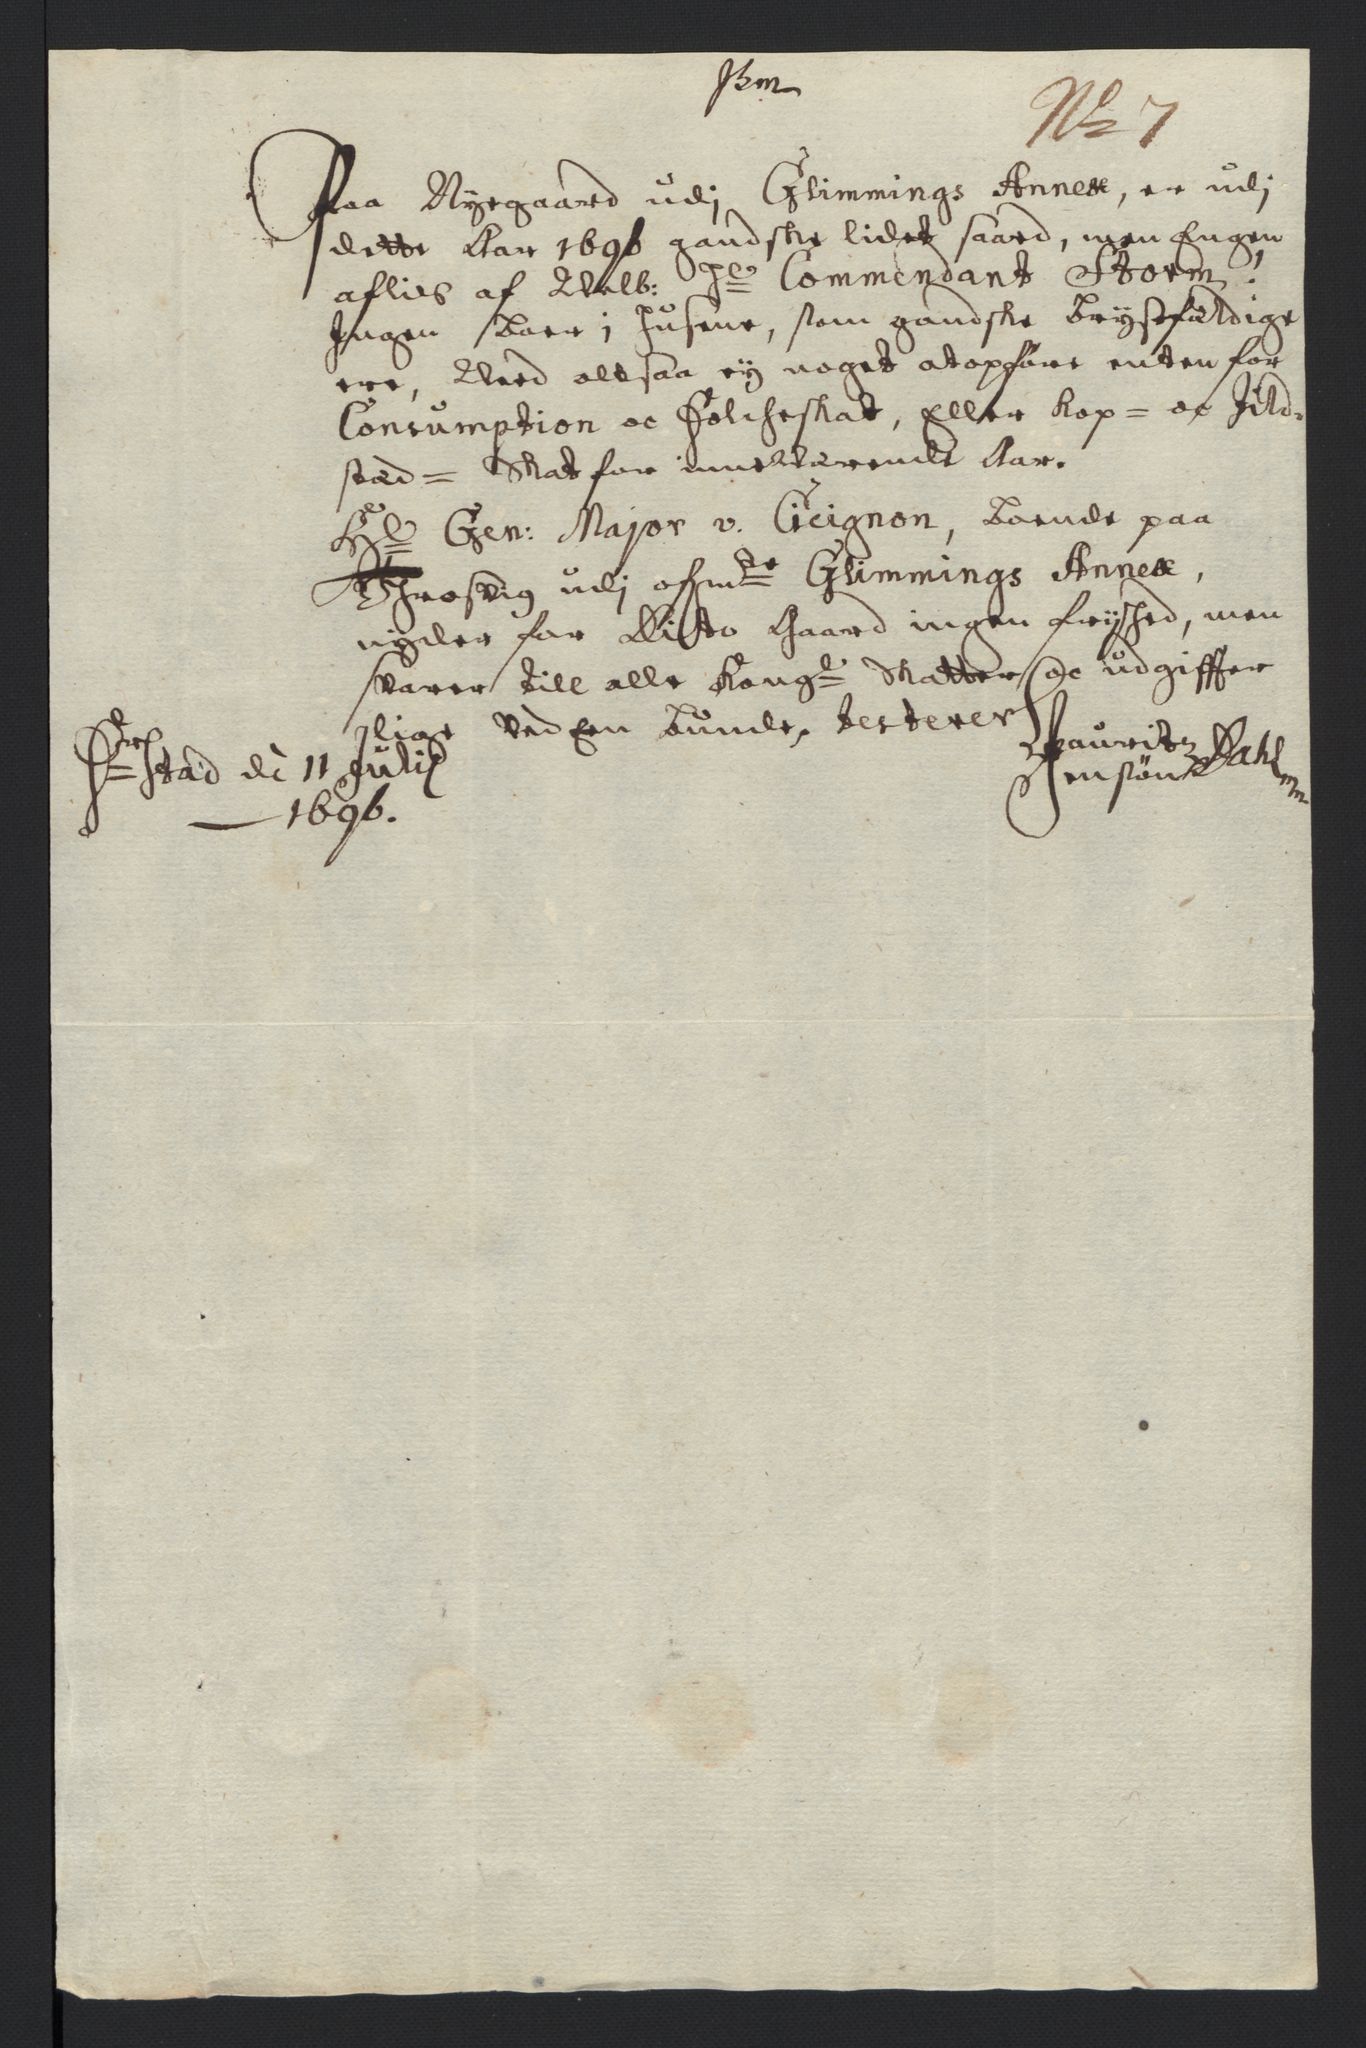 No 7
Paa Nyegaard udj Glimmings Annex, er udj
dette Aar 1696 gandske lidet saaed, men Engen
aflies af Welb: Hr Commendant Storm!
Ingen boer i Husene, som gandske brystfældige
ere, Veed altsaa ej noget at opføre enten for
Consumption oc Folcheskat, Eller Kop= oc Ild=
sted= Skat for inneVærende Aar.
Hr Gen: Major v. Cicignon, boende paa
Throsvig udj ofmte Glimmings Annex,
nyder for Ditto Gaard ingen frijhed, men
svarer till alle Kongl Skatter oc udgiffter
lige ved en bunde, testerer
Frstad de 11 Julij
1696.
Lauritz
Jensøn Dahl